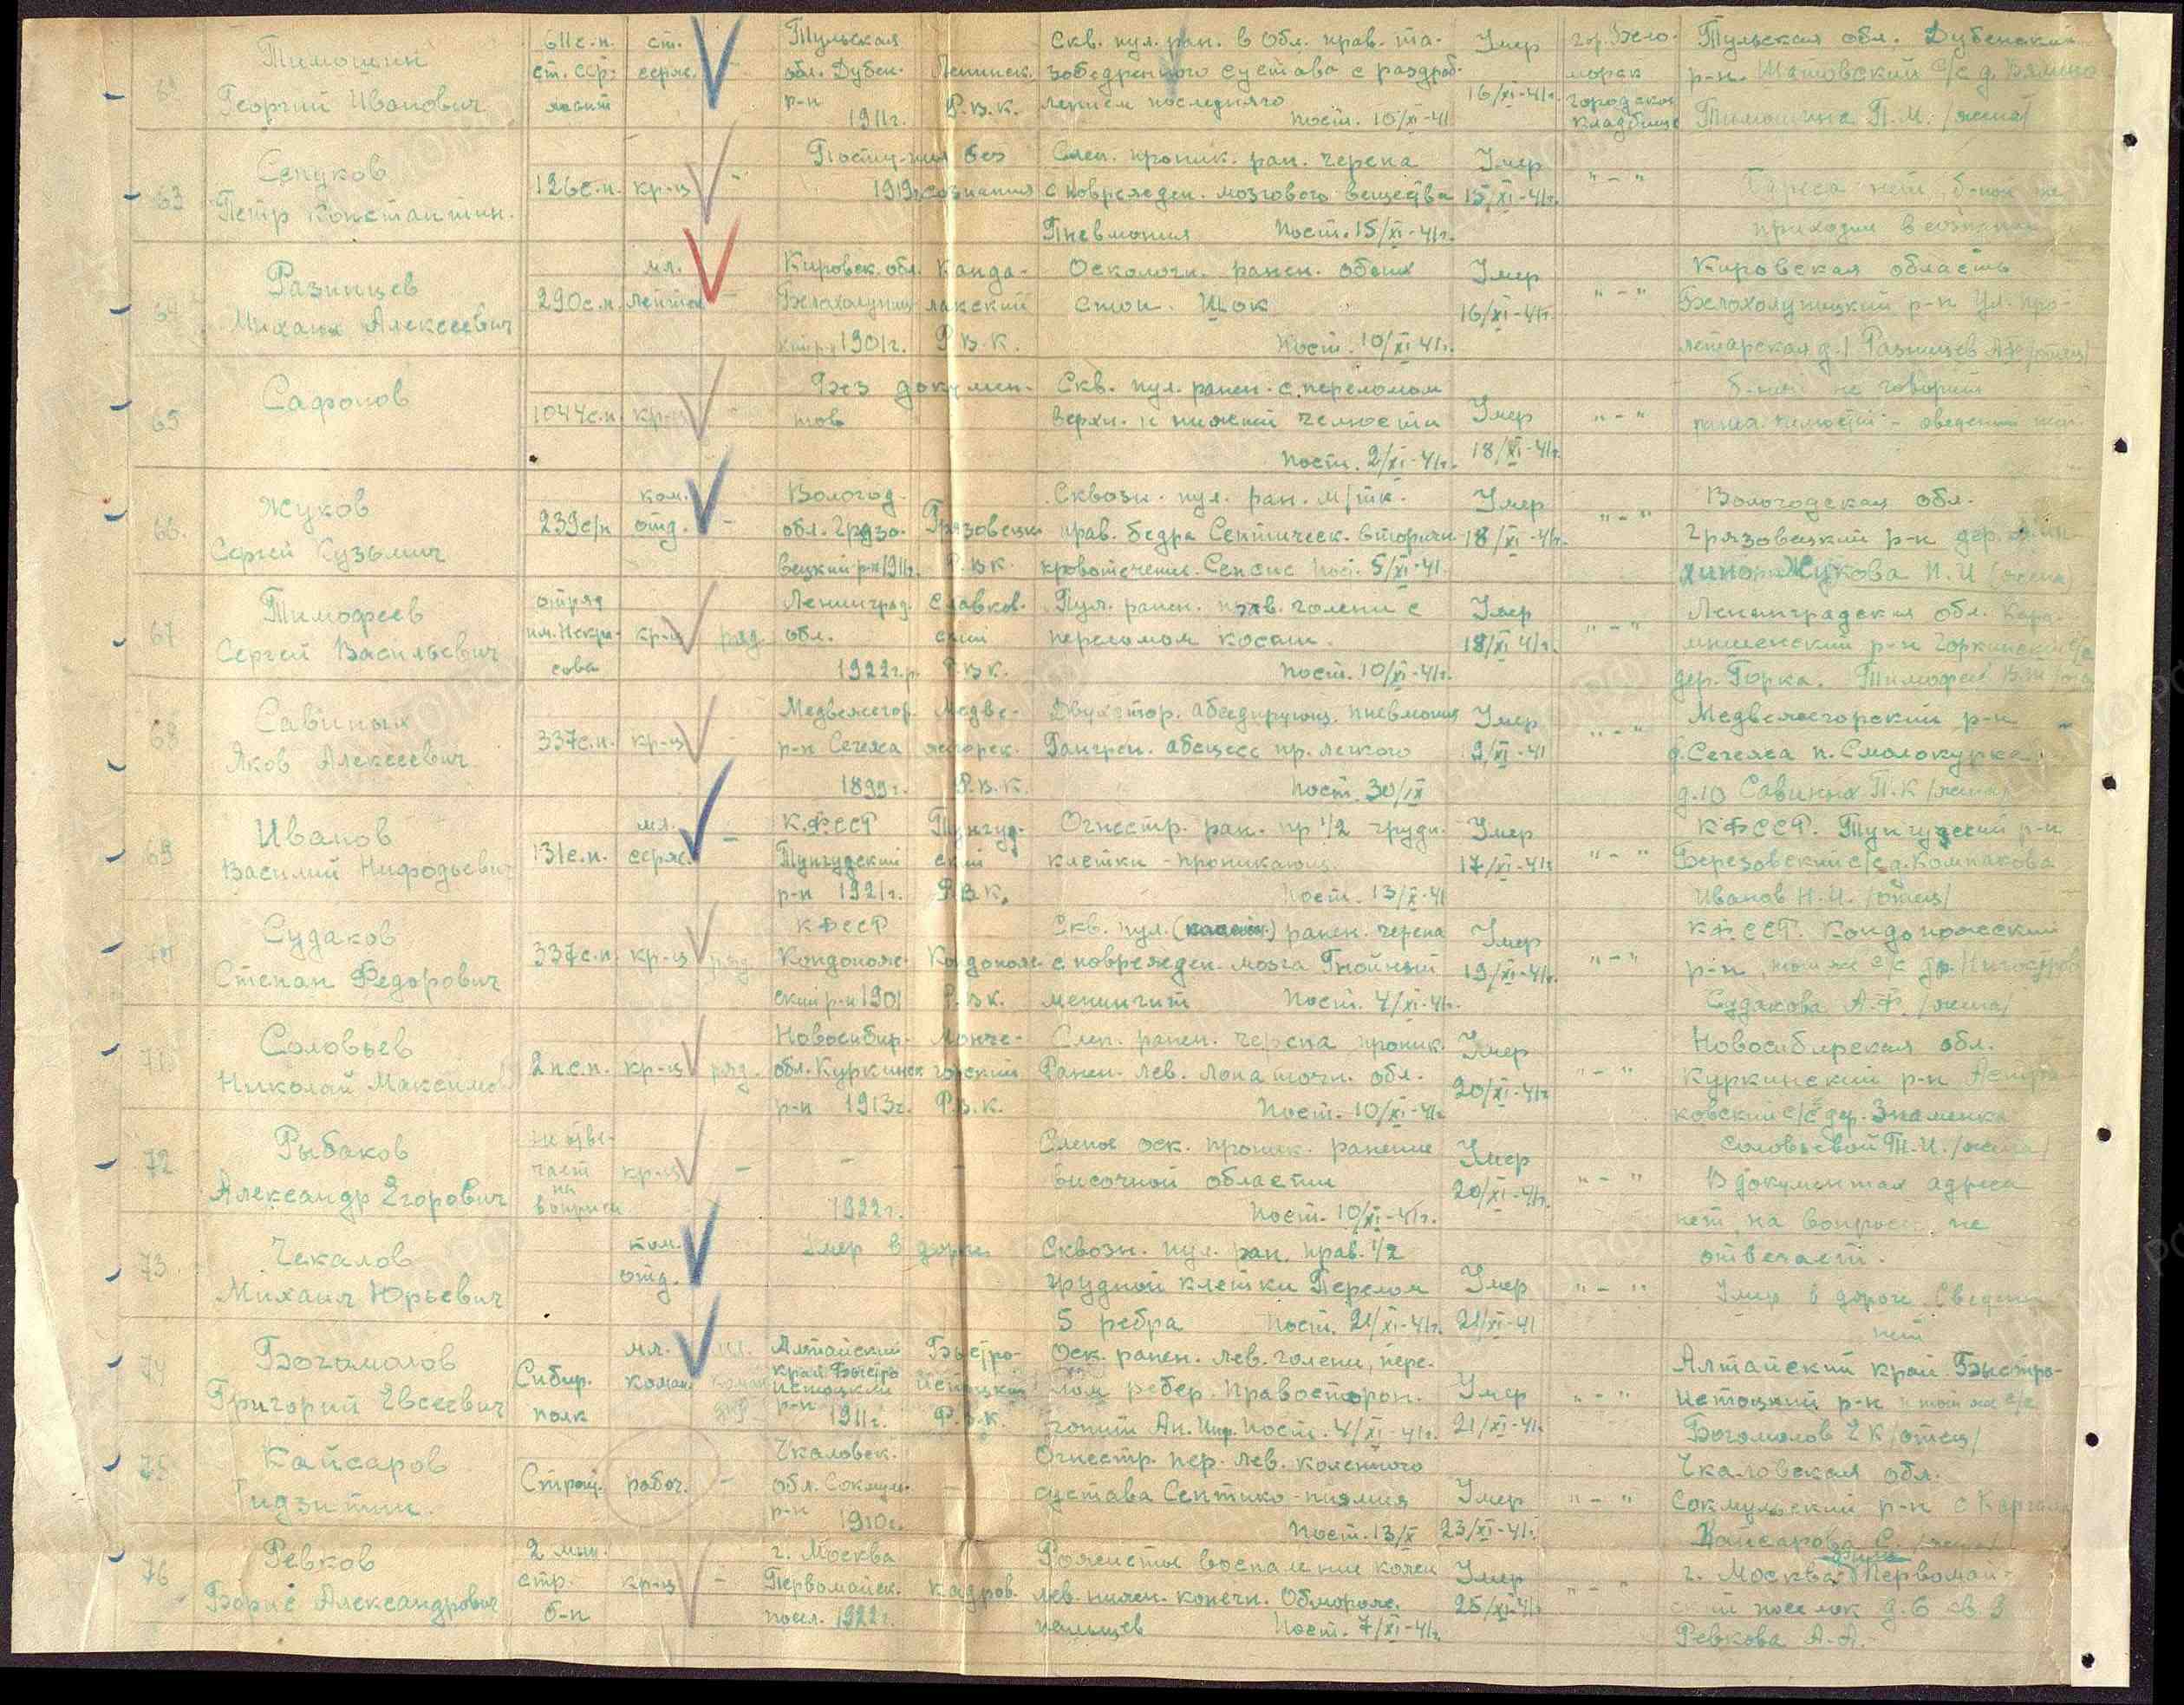 Тимошин
Георгий Иванович
611 с.п.
ст. сер.
ст.
серж.
Тульская
обл. Дубен.
р-н
1911г.
Ленинск.
Р.В.К.
Скв. пул. ран. в обл. прав. та-
зобедренного сустава с раздроб-
лением последнего
пост. 10/XI-41
Умер
16/XI-41г.
гор. Бело-
морск
городское
кладбище
Тульская обл. Дубенский
р-н. Шатовский с/с д.
Тимошина П. И. /жена/
63
Сенуков
Петр Константин.
126 с.п.
кр-ц
"
Поступил без
1919г. сознания
Слеп. проник. ран. черепа
с поврежден. мозгового вещества
Пневмония Пост. 15/XI-41г.
Умер
15/XI-41г.
" - "
Адреса нет б-ной не
приходил в сознание
64
Разницев
Михаил Алексеевич
290 с.п.
мл.
лейтен
-
Кировск. обл.
Белохолуниц
кий р-н 1901г.
Канда-
лакский
Р.В.К.
Осколочн. ранен. обеих
стоп. Шок
Пост. 10/XI-41г.
Умер
16/XI-41г.
" - "
Кировская область
Белохолуницкий р-н ул. Про-
летарская д.1 Разницев /отец/
65
Сафонов
1044 с.п.
кр-ц
"
Без докумен-
тов
Скв. пул. ранен. с переломом
верхн. и нижней челюсти
Пост. 2/XI-41г.
Умер
18/XI-41г.
" - "
б-ной не говорит
челюсти - сведений
66.
Жуков
Сергей Кузьмич
239 с/п
ком.
отд.
-
Вологод.
обл. Грязо-
вецкий р-н 1911г.
Грязовецк
Р.В.К.
Сквозн. пул. ран. м/тк.
прав. бедра Септическ. вторичн
кровотечение. Сепсис Пост. 5/XI-41.
Умер
18/XI-41г.
" - "
Вологодская обл.
Грязовецкий р-н дер.
Жукова П. И (жена)
67
Тимофеев
Сергей Васильевич
отряд
им. Некра-
сова
кр-ц
ряд.
Ленинград.
обл.
1922г.р.
Славков-
ский
Р.В.К.
Пул. ранен. прав. голени с
переломом костей.
Пост. 10/XI-41г.
Умер
18/XI 41г.
" - "
Ленинградская обл. Кара-
мышенский р-н Горкинский с/с
дер. Горка. Тимофеев
68
Савиных
Яков Алексеевич
337 с.п.
кр-ц
-
Медвежегор.
р-н Сегежа
1899г.
Медве-
жегорск.
Р.В.К.
Двухстор. абсцедирующ. пневмония
Гангрен. абсцесс пр. легкого
Пост. 30/IX
Умер
9/XI-41
" - "
Медвежегорский р-н
д. Сегежа п. Смолокурка
д.10 Савиных П.К /жена/
69
Иванов
Василий Нифодьевич
131 с.п.
мл.
серж.
-
К.Ф.ССР
Тунгудский
р-н 1921г.
Тунгуд-
ский
Р.В.К.
Огнестр. ран. пр 1/2 грудн.
клетки - проникающ.
Пост. 13/X-41
Умер
17/XI-41г
" - "
КФССР. Тунгудский р-н
Березовский с/с д. Компакова
Иванов Н. И. /отец/
70
Судаков
Степан Федорович
337 с.п.
кр-ц
ряд
КФССР
Кондопож-
ский р-н 1901
Кондопож.
Р.В.К.
Скв. пул. ранен. черепа
с поврежден. мозга Гнойный
менингит Пост. 4/XI-41г.
Умер
19/XI-41г.
" - "
КФССР. Кондопожский
р-н, той же с/с
Судакова А. Ф. /жена/
71
Соловьев
Николай Максимо
2 п.с.п.
кр-ц
ряд.
Новосибир-
обл. Куркинск
р-н 1913г.
Монче-
горский
Р.В.К.
Слеп. ранен. черепа проник.
Ранен. лев. лопаточн. обл.
Пост. 10/XI-41г
Умер
20/XI-41г
" - "
Новосибирская обл.
Куркинский р-н
ковский с/с дер. Знаменка
Соловьевой Т. И. /жена/
72
Рыбаков
Александр Егорович
не отве-
чает
на
вопросы
кр-ц
-
-
1922г.
-
Слепое оск. проник. ранение
височной области
Пост. 10/XI-41г.
Умер
20/XI-41г.
" - "
В документах адреса
нет, на вопросы не
отвечает.
73
Чекалов
Михаил Юрьевич
ком.
отд.
Умер в дороге
Сквозн. пул. ран. прав. 1/2
грудной клетки Перелом
5 ребра Пост. 21/XI-41г.
Умер
21/XI-41
" - "
Умер в дороге Сведени
ней
74
Богомолов
Григорий Евсеевич
Сибир.
полк
мл.
коман
мл.
Алтайский
край Быстро
истоцкий
р-н 1911г.
Быстро-
истоцкий
Р.В.К.
Оск. ранен. лев. голени, пере-
лом ребер. Правосторон.
Пост. 4/XI-41г.
Умер
21/XI-41г
" - "
Алтайский край Быстро-
истоцкий р-н
Богомолов Е К /отец/
75
Кайсаров
Гидзитин.
Строй.
рабоч.
-
Чкаловск.
обл. Сокмул.
р-н
1910г.
-
Огнестр. пер. лев. коленного
сустава Септико-пиэмия
Пост. 13/X
Умер
23/XI-41г.
" - "
Чкаловская обл.
Сокмульский р-н с Каргала
Кайсарова С. /жена/
76
Ревков
Борис Александрович
2 мин.
стр.
б-н
кр-ц
-
г. Москва
Первомайск.
посел. 1922г.
кадров.
Рожистое воспаление кожи
лев. нижн. конечн. Обморож.
пальцев Пост. 7/XI-41г.
Умер
25/XI-41г
" - "
г. Москва Первомай-
ский поселок д. 6 кв 3
Ревкова А. А.